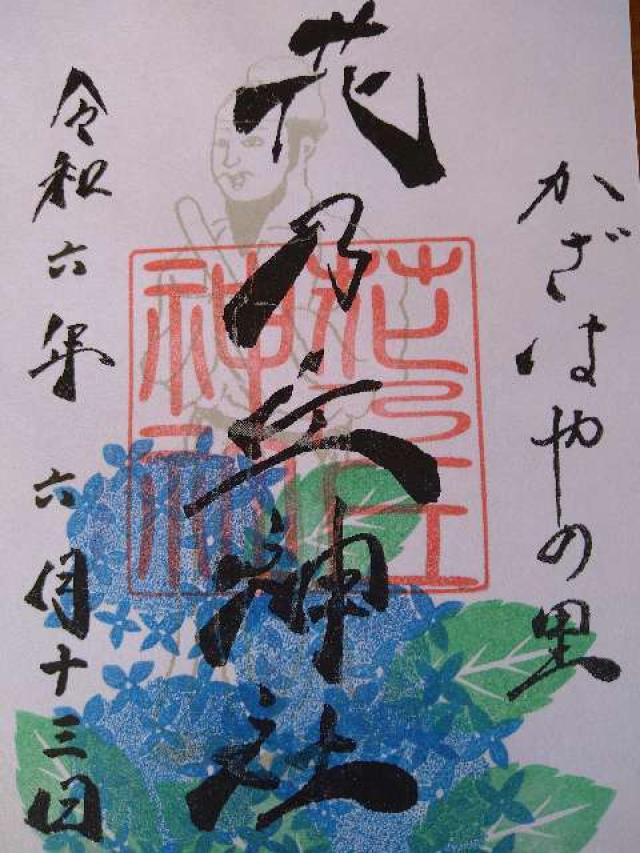 かざはやの里
花乃丘神社
令和六年 六月十三日
花乃丘神社